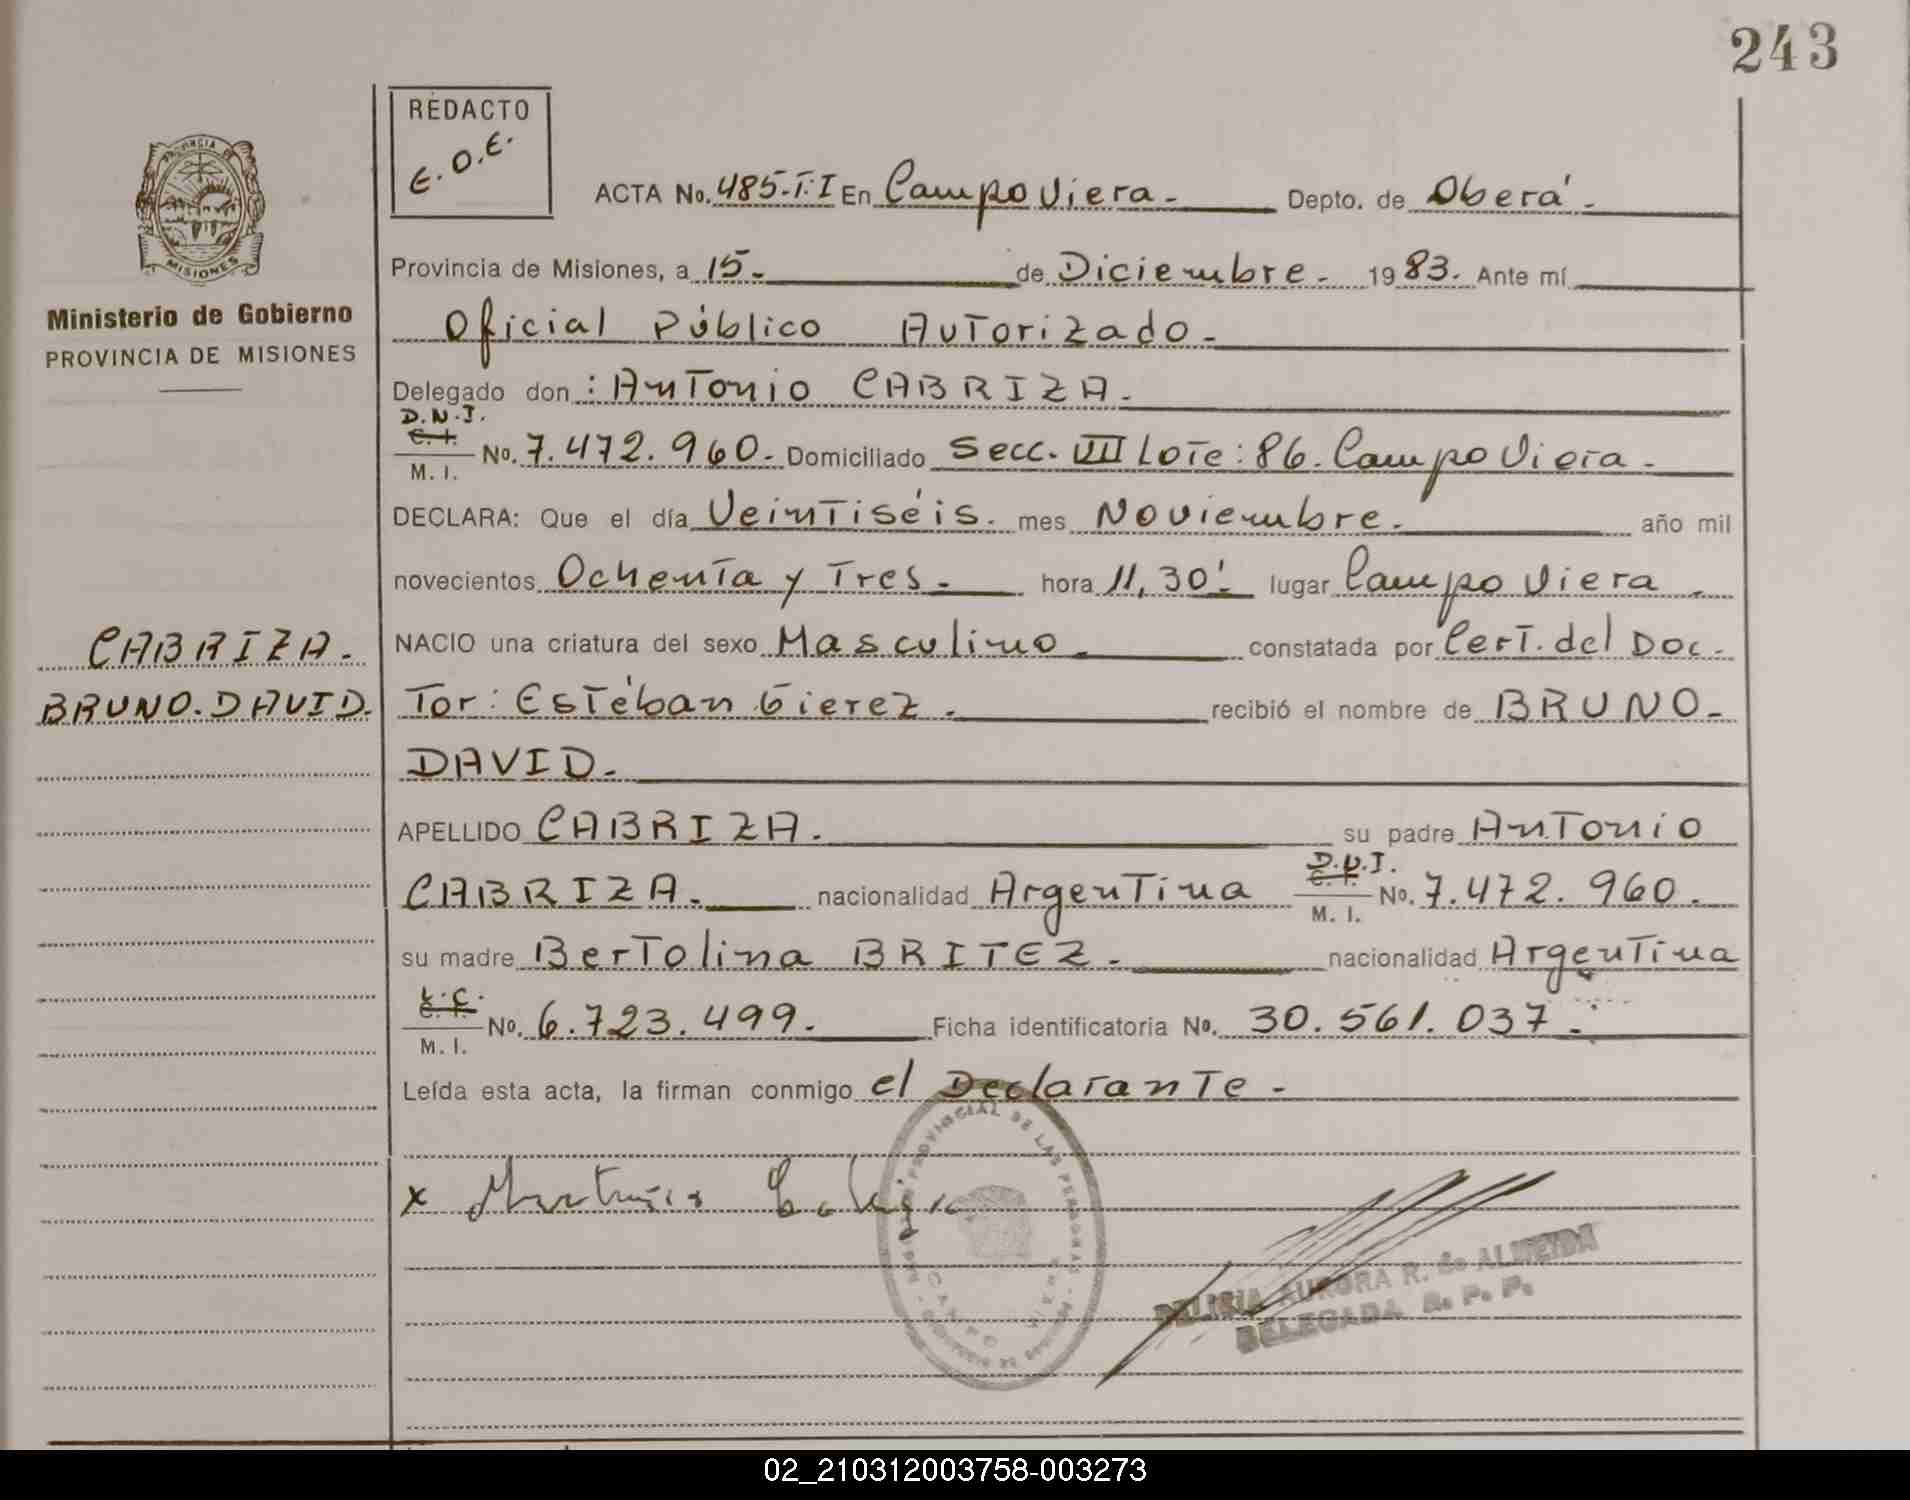 243
REDACTO
E.O.E.
PROVINCIA DE
MISIONES
Ministerio de Gobierno
PROVINCIA DE MISIONES
ACTA No. 485-T.I En Campo Viera. Depto. de Oberá.
Provincia de Misiones, a 15. de Diciembre. 19 83. Ante mí
Oficial Público Autorizado.
Delegado don: Antonio CABRIZA.
D.N.I.
C. I.
M. I. No. 7.472.960. Domiciliado Secc. VIII Lote: 86. Campo Viera.
DECLARA: Que el día Veintiséis. mes Noviembre. año mil
novecientos Ochenta y Tres. hora 11,30' lugar Campo Viera.
CABRIZA. NACIO una criatura del sexo Masculino. constatada por Cert. del Doc-
BRUNO. DAVID. Tor: Estéban Gierez. recibió el nombre de BRUNO-
DAVID.
APELLIDO CABRIZA. su padre Antonio
D.N.I.
C. I.
CABRIZA. nacionalidad Argentina M. I. No. 7.472.960.
su madre Bertolina BRITEZ. nacionalidad Argentina
L.C.
C. I.
M. I. No. 6.723.499. Ficha identificatoria No. 30.561.037.
Leída esta acta, la firman conmigo el Declarante.
x
PROVINCIAL DE LAS PERSONAS
CAMPO
AURORA R. de ALMEIDA
DELEGADA R. P. P.
02_210312003758-003273